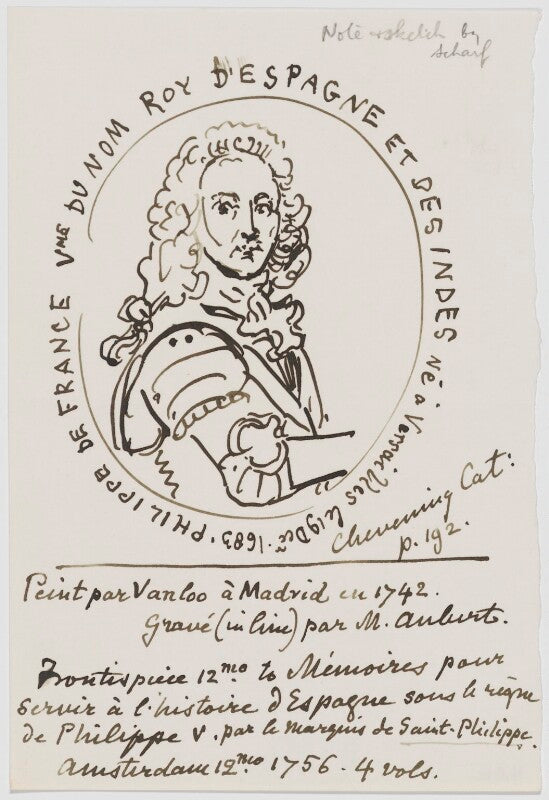 Note & sketch by
Scharf
PHILIPPE DE FRANCE Vme DU NOM ROY D'ESPAGNE ET DES INDES Né a Versailles le 19 Decr. 1683.
Chevening Cat:
p. 192.
Peint par Vanloo à Madrid en 1742.
Gravé (in line) par M. Aubert.
Frontispiece 12mo to Mémoires pour
servir à l'histoire d'Espagne sous le règne
de Philippe V. par le marquis de Saint-Philippe.
Amsterdam 12mo 1756 - 4 vols.